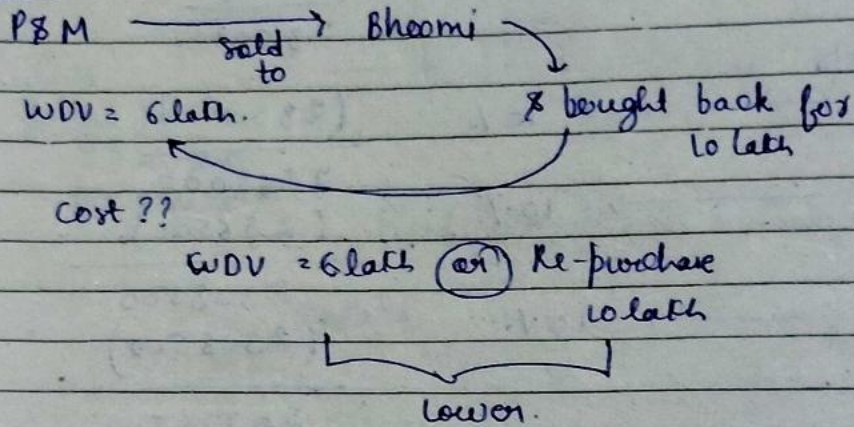 P&M sold to Bhoomi
WDV = 6 lakh. & bought back for
10 lakh
Cost ??
WDV = 6 lakh or Re-purchase
10 lakh
lower.